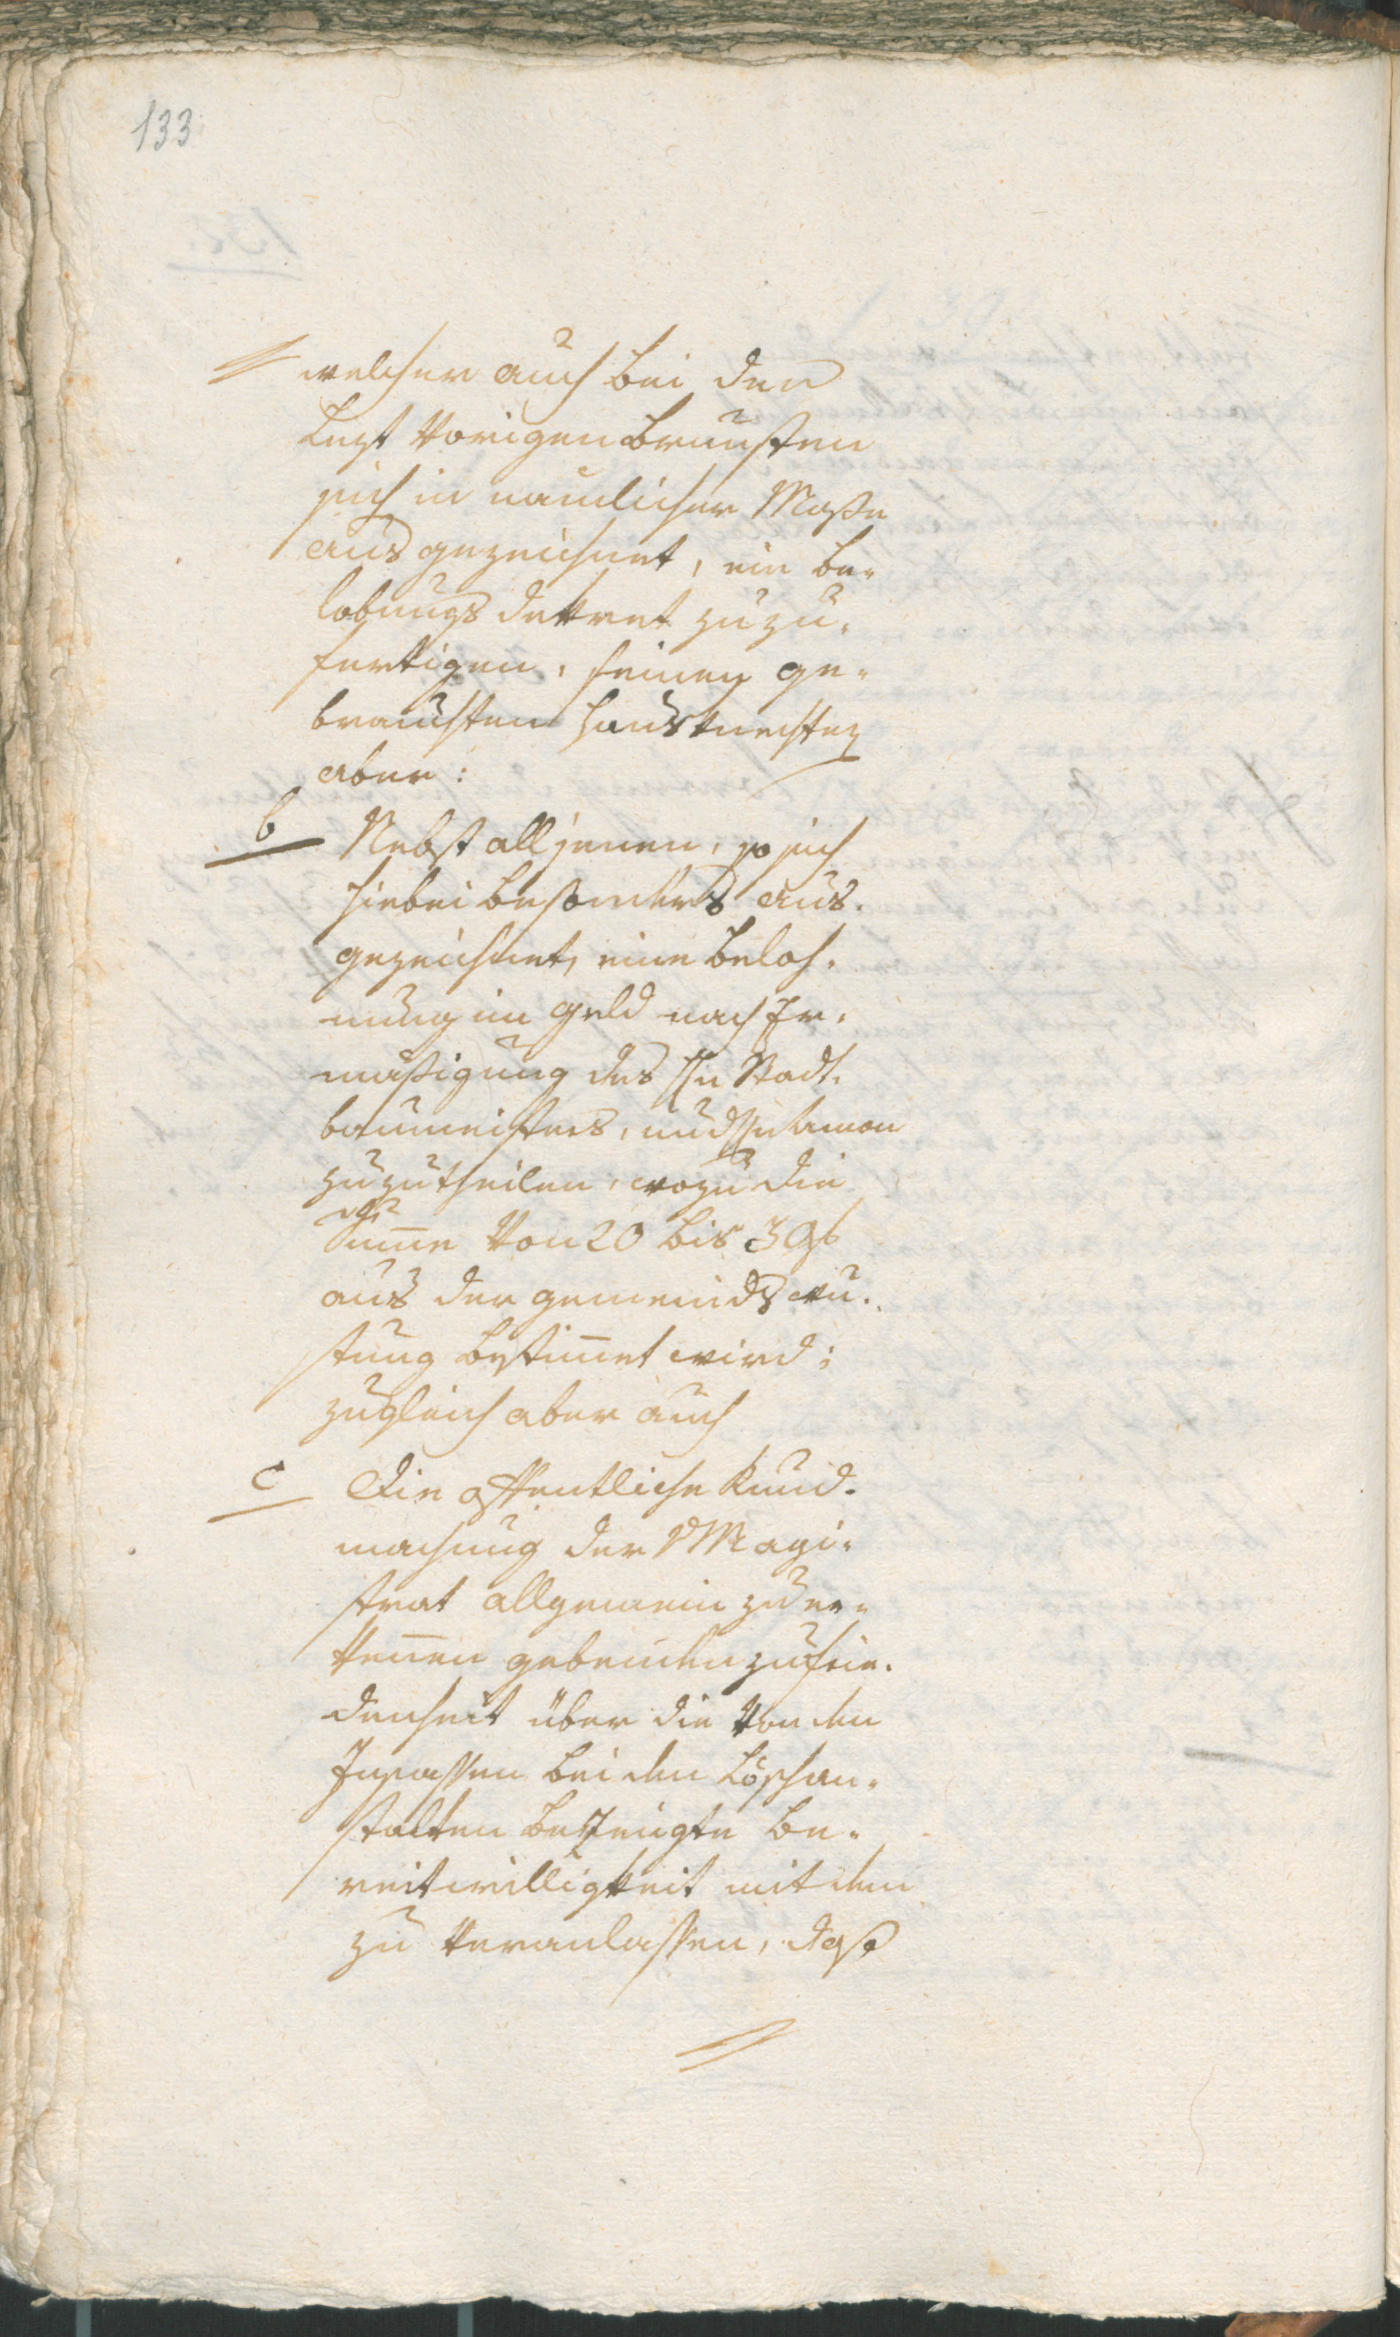 133
welcher auch bei den
lezt vorigen Brunsten
sich in nämlicher Maße
ausgezeichnet, ein be-
lobungs dekret zuzu-
fertigen, seinen ge-
brauchten Hausknechten
aber:
b Nebst all jenen, so sich
hiebei besonders aus-
gezeichnet, eine Beloh-
nung im Geld nach Er-
mäßigung des Hn Stadt-
baumeisters, und Hn
zuzutheilen, wozu die
Summe von 20 bis 30 f
aus der gemeinds
bestimmet wird;
zugleich aber auch
c Die öffentliche Kund-
machung der Magi-
strat allgemein zu er-
kennen gebenden zufrie-
denheit über die von den
Insassen bei den Löschan-
stalten bezeugte Be-
reitwilligkeit mit dem
zu veranlassen, daß